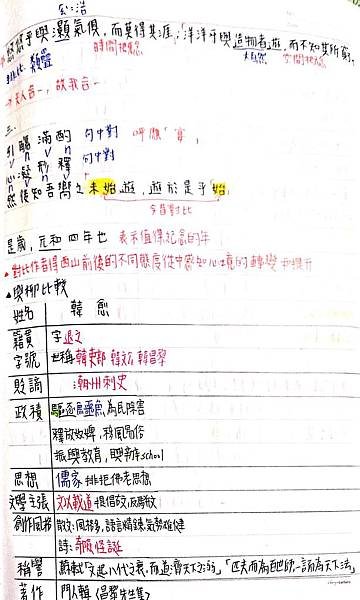 公:浩
悠悠乎與灝氣俱,而莫得其涯;洋洋乎與造物者遊,而不知其所窮。
時間概念
大自然
空間概念
對比、類疊
→天人合一,故我合一
三、
引觴滿酌 句中對 呼應「宴」
v n v n
心凝形釋 句中對
n v n v
然後知吾嚮之未始遊,遊於是乎始,
今昔對比
是歲,元和四年也 表示值得紀念的年
▲對比作者得西山前後的不同態度從中感知心境的轉變和提升
▲與柳比較
姓名 韓愈
籍貫
字號 字退之
世稱韓吏部 韓文公 韓昌黎
貶謫 潮州刺史
政積 驅逐鱷魚,為民除害
釋放奴婢,移風易俗
振興教育,興辦school
思想 儒家 排拒佛老思想
文學主張 文以載道 提倡散文,反駢文
創作風格 散文:風格多,語言精鍊,氣勢雄健
詩:奇險怪誕
稱譽 蘇軾「文起八代之衰,而道濟天下之溺」「匹夫而為百世師,一言而為天下法」
著作 門人輯《昌黎先生集》